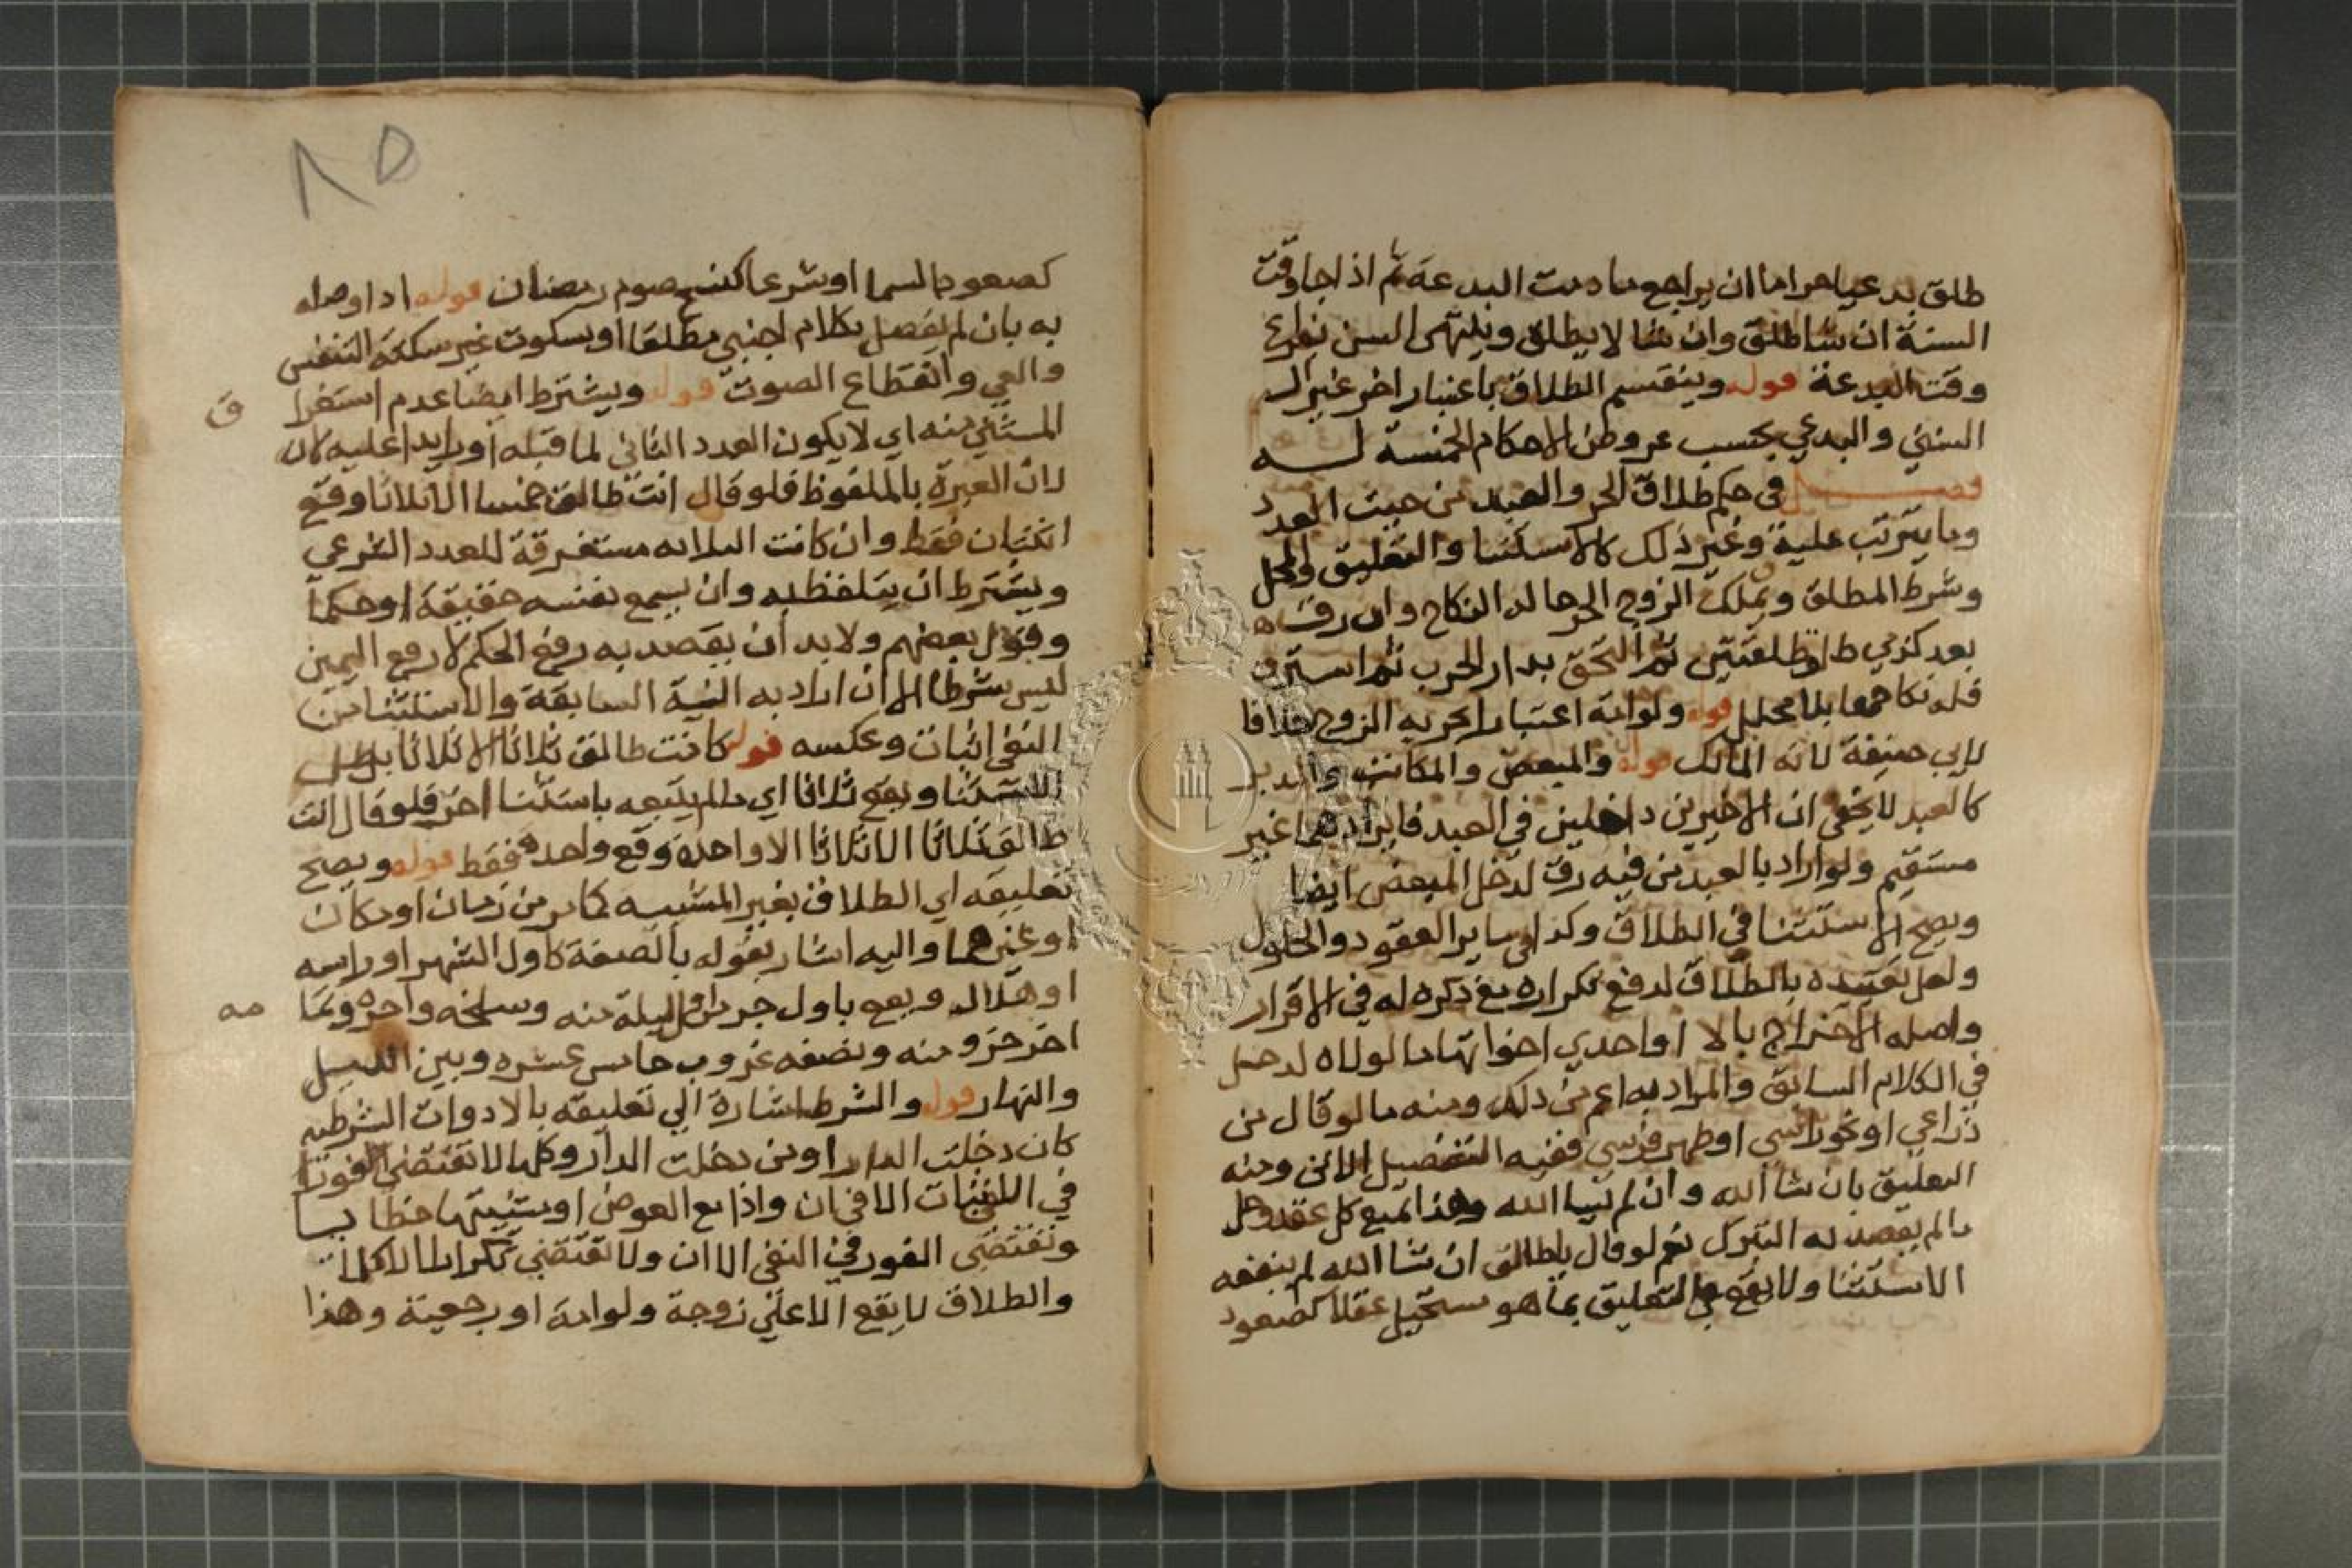 طلق بدعيا حراما ان يراجع مادمت البدعة ثم اذا جا وقت
السنة ان شا طلق وان شا لا يطلق وينتهى السن بفراغ
وقت البدعة قوله وينقسم الطلاق باعتبار اخر غير
السني والبدعي بحسب عروض الاحكام الخمسة لـــه
فصـــل في حكم طلاق الحر والعبد من حيث العدد
وما يترتب عليه وغير ذلك كالاستثنا والتعليق والمحل
وشرط المطلق ويملك الزوج الحر حالة النكاح وان رق
بعد كذمي طلق طلقتين ثم التحق بدار الحرب ثم استرق
فله نكاحها بلا محلل قوله ولو امة اعتبارا بحرية الزوج خلافا
لابي حنيفة لانه المالك قوله والمبعض والمكاتب والمدبر
كالعبد لا يخفى ان الاخيرين داخلين في العبد فايرادهما غير
مستقيم ولو اراد بالعبد من فيه رق لدخل المبعض ايضا
ويصح الاستثنا في الطلاق وكذا في ساير العقود والحلول
ولعل تقييده بالطلاق لدفع تكراره مع ذكره له في الاقرار
واصله الاخراج بالا او احدي اخواتها ما لولاه لدخل
في الكلام السابق والمراد به اعم من ذلك ومنه ما لو قال من
ذراعي او نحو راسي او ظهر فرسي ففيه التفصيل الاتي ومنه
التعليق بان شا الله وان لم يشا الله وهذا يمنع كل عقد وحل
مالم يقصد به التبرك نعم لو قال يا طالق ان شا الله لم ينفعه
الاستثنا ولا يقع في التعليق بما هو مستحيل عقلا كصعود
٨٥
كصعود السما او شرعا كنسخ صوم رمضان قوله اذا وصله
به بان لم يفصل بكلام اجنبي مطلقا او بسكوت غير سكتة التنفس
والعي وانقطاع الصوت قوله ويشترط ايضا عدم استغرا
ق
المستثني منه اي لا يكون العدد الثاني لما قبله او زايدا عليه
لان العبرة بالملفوظ فلو قال انت طالق خمسا الا ثلاثا وقع
اثنتان فقط وان كانت الثلاثه مستغرقة للعدد الشرعي
ويشترط ان يتلفظ به وان يسمع نفسه حقيقة او حكما
وقول بعضهم ولا بد ان يقصد به رفع الحكم لا رفع اليمين
ليس شرطا الا ان اراد به النية السابقة والاستثنا من
النفي اثبات وعكسه قوله كانت طالق ثلاثا الا ثلاثا بطل
الاستثنا ويقع ثلاثا اي مالم يتبعه باستثنا اخر فلو قال انت
طالق ثلاثا الا ثلاثا الا واحدة وقع واحدة فقط قوله ويصح
تعليقه اي الطلاق بغير المشييه كما مر من زمان او مكان
او غيرهما واليه اشار بقوله بالصفة كاول الشهر او راسه
او هلاله ويقع باول جزء من اول ليلة منه وسلخه واخره وتما
مه
اخر جزو منه ونصفه غروب خامس عشره وبين الليل
والنهار قوله والشرط اشارة الي تعليقه بالادوات الشرطيه
كان دخلت الدار او من دخلت الدار وكلها لا تقتضي الفور
في الاثبات الا في ان واذا مع العوض او بمشيتها خطابا
وتقتضى الفور في النفى الا ان ولا تقتضي تكرارا الا كلما
والطلاق لا يقع الا علي زوجة ولو امة او رجعية وهذا